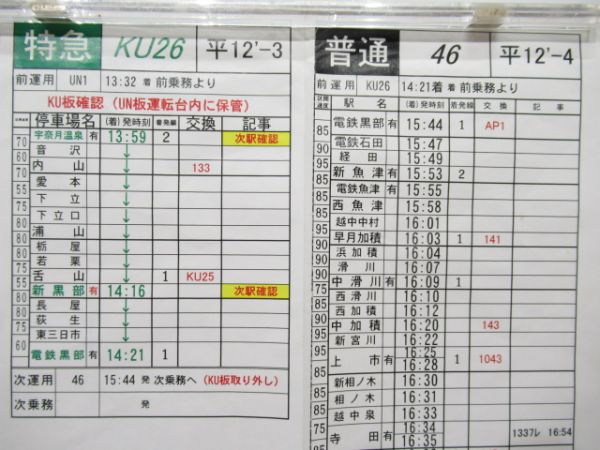 特急 KU26 平12'-3
前運用 UN1 13:32 着 前乗務より
KU板確認（UN板運転台内に保管）
停車場名 (着)発時刻 着発線 交換 記事
宇奈月温泉 有 13:59 2 次駅確認
70
音沢 ↓
70
内山 ↓ 133
75
愛本 ↓
75
下立 ↓
下立口 ↓
80
浦山 ↓
80
栃屋 ↓
若栗 ↓
75
舌山 ↓ 1 KU25
55
新黒部 有 14:16 次駅確認
80
長屋 ↓
荻生 ↓
75
東三日市 ↓
60
電鉄黒部 有 14:21 1
次運用 46 15:44 発 次乗務へ（KU板取り外し）
次乗務 発
普通 46 平12'-4
前運用 KU26 14:21着 着 前乗務より
駅名 (着)発時刻 着発線 交換 記事
電鉄黒部 有 15:44 1 AP1
85
電鉄石田 15:47
経田 15:49
新魚津 有 15:53 2
電鉄魚津 有 15:55
西魚津 15:58
越中中村 16:01
早月加積 16:03 1 141
浜加積 16:04
滑川 16:07
中滑川 有 16:09 1
西滑川 16:10
西加積 16:12
中加積 16:20 143
新宮川 16:22
上市 有 16:25 16:28 1 1043
新相ノ木 16:30
相ノ木 16:31
越中泉 16:33
寺田 有 16:34 16:35 1337レ 16:54